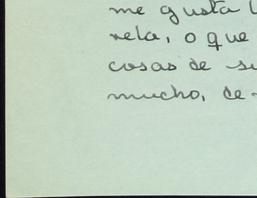 me gusta l
rela, o que
cosas de su
mucho, de-